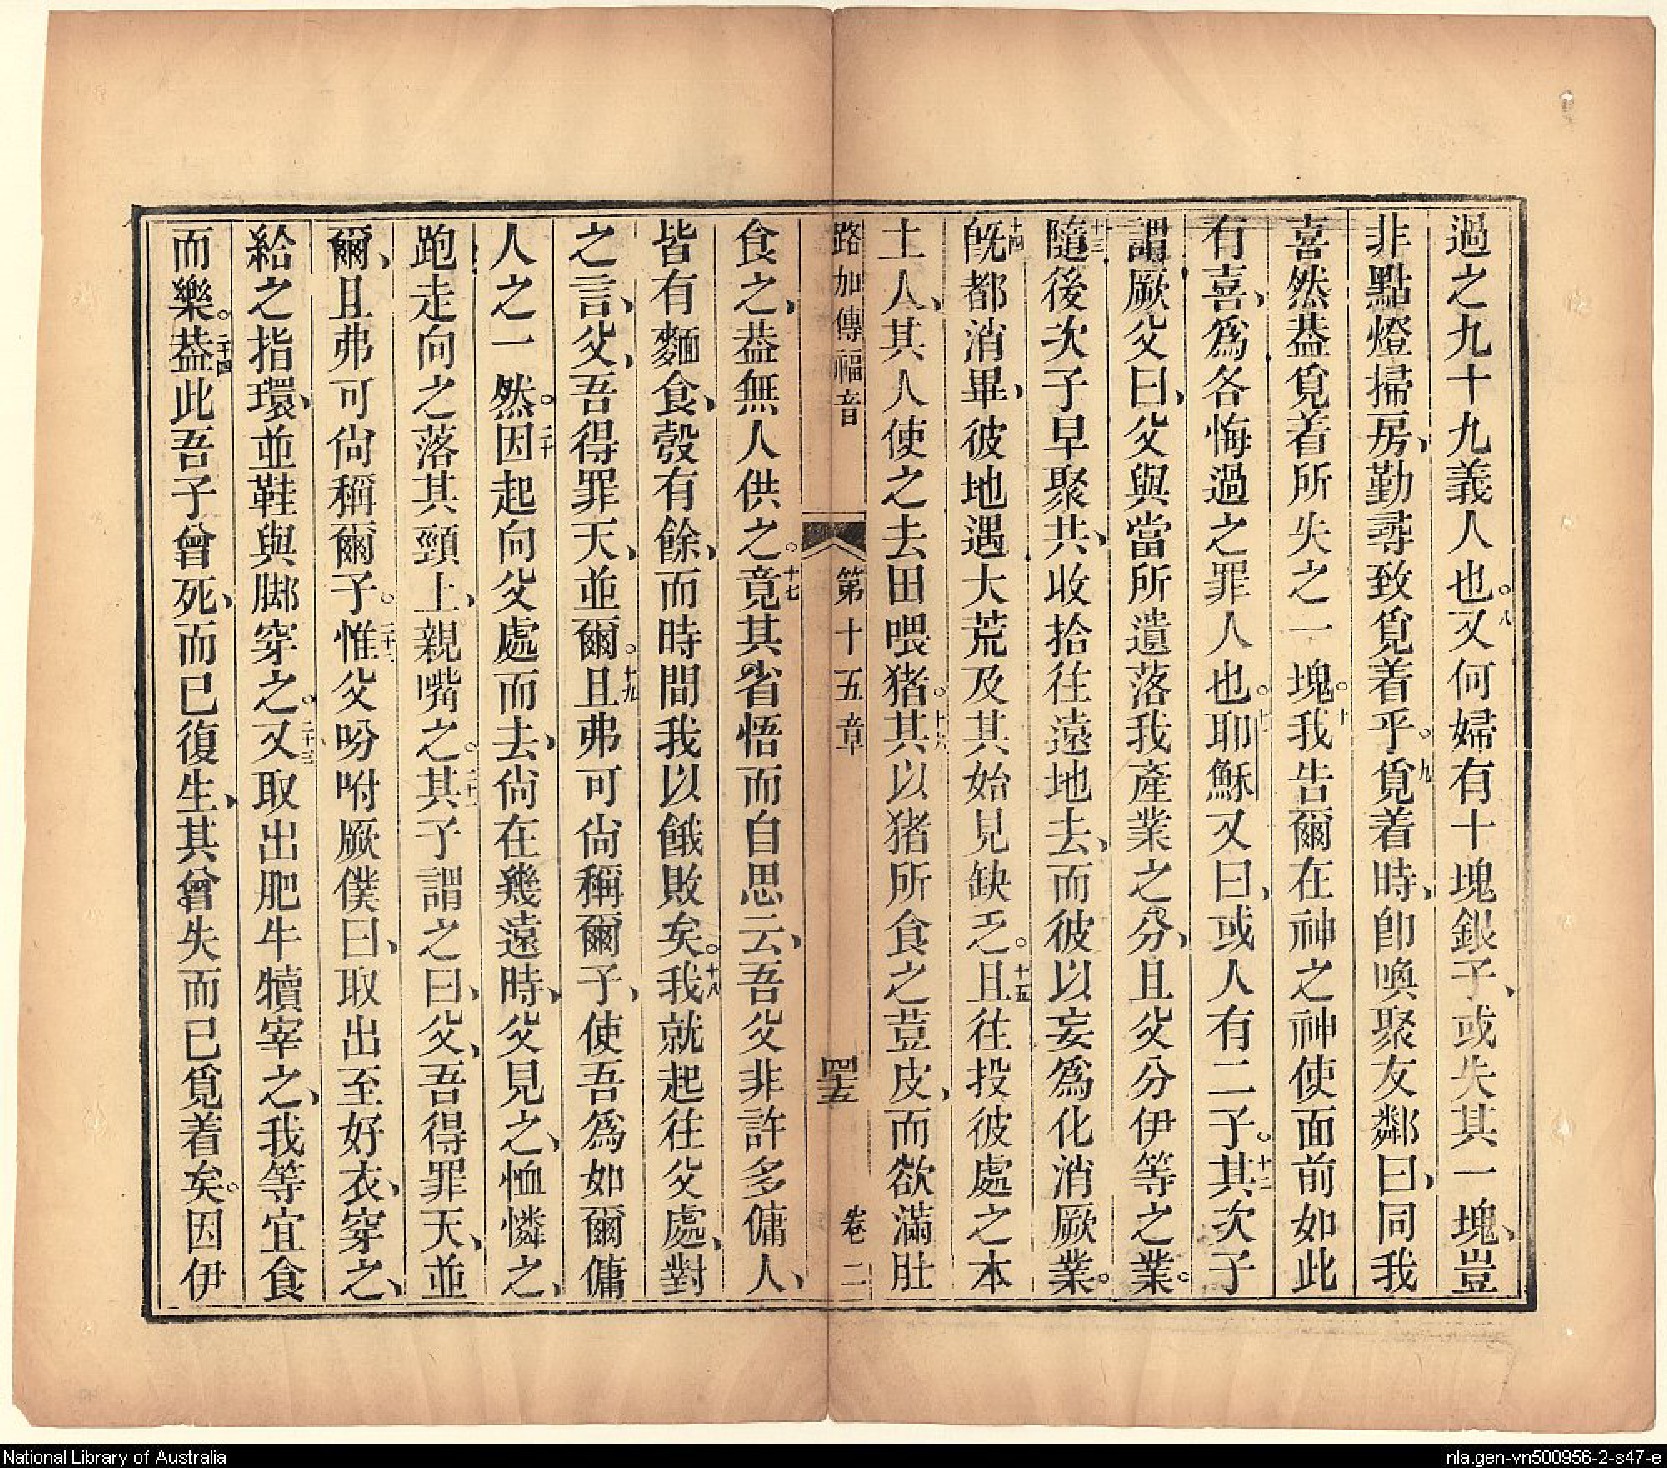 過之九十九義人也。八又何婦有十塊銀子、或失其一塊、豈
非點燈掃房、勤尋致覓着乎。九覓着時、卽喚聚友鄰曰、同我
喜然葢覓着所失之一塊。十我告爾在神之神使面前如此
有喜、爲各悔過之罪人也。十一耶穌又曰、或人有二子。十二其次子
謂厥父曰、父與當所遺落我產業之分、且父分伊等之業。
十三隨後次子早聚共、收拾往遠地去、而彼以妄爲化消厥業。
十四旣都消畢、彼地遇大荒及其始見缺乏。十五且往投彼處之本
土人、其人使之去田喂猪。十六其以猪所食之荳皮、而欲滿肚
路加傳福音 第十五章 四五 卷二
食之、葢無人供之。十七竟其省悟而自思云、吾父非許多傭人、
皆有麵食、彀有餘、而時間我以餓敗矣。十八我就起往父處、對
之言、父、吾得罪天、並爾。十九且弗可尙稱爾子、使吾爲如爾傭
人之一然。二十因起向父處而去、尙在幾遠時、父見之、恤憐之、
跑走向之落其頸上、親嘴之。二十一其子謂之曰、父、吾得罪天、並
爾、且弗可尙稱爾子。二十二惟父吩咐厥僕曰、取出至好衣、穿之、
給之指環、並鞋與脚穿之。二十三又取出肥牛犢宰之、我等宜食
而樂。二十四葢此吾子曾死、而已復生、其曾失而已覓着矣。因伊